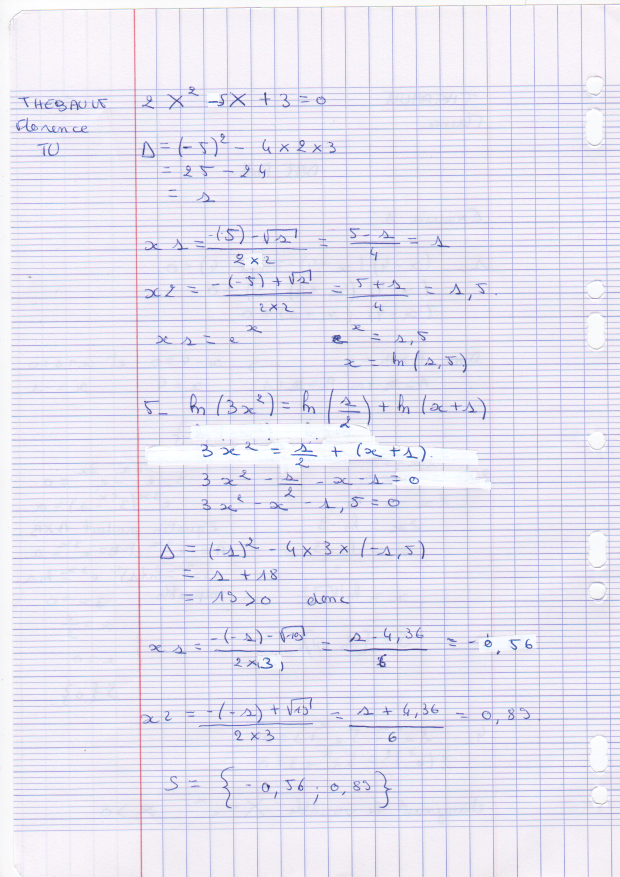 THEBAULT 2X² - 5X + 3 = 0
Florence
TU Δ = (-5)² - 4 × 2 × 3
= 25 - 24
= 1
x1 = (-(5) - √1) / (2×2) = (5 - 1) / 4 = 1
x2 = (-(-5) + √1) / (2×2) = (5 + 1) / 4 = 1,5.
x1 = e^x e^x = 1,5
x = ln(1,5)
5- ln(3x²) = ln(1/2) + ln(x+1)
3x² = 1/2 + (x+1).
3x² - 1/2 - x - 1 = 0
3x² - x² - 1,5 = 0
Δ = (-1)² - 4 × 3 × (-1,5)
= 1 + 18
= 19 > 0 donc
x1 = (-(-1) - √19) / (2×3) = (1 - 4,36) / 6 = -0,56
x2 = (-(-1) + √19) / (2×3) = (1 + 4,36) / 6 = 0,89
S = {-0,56 ; 0,89}